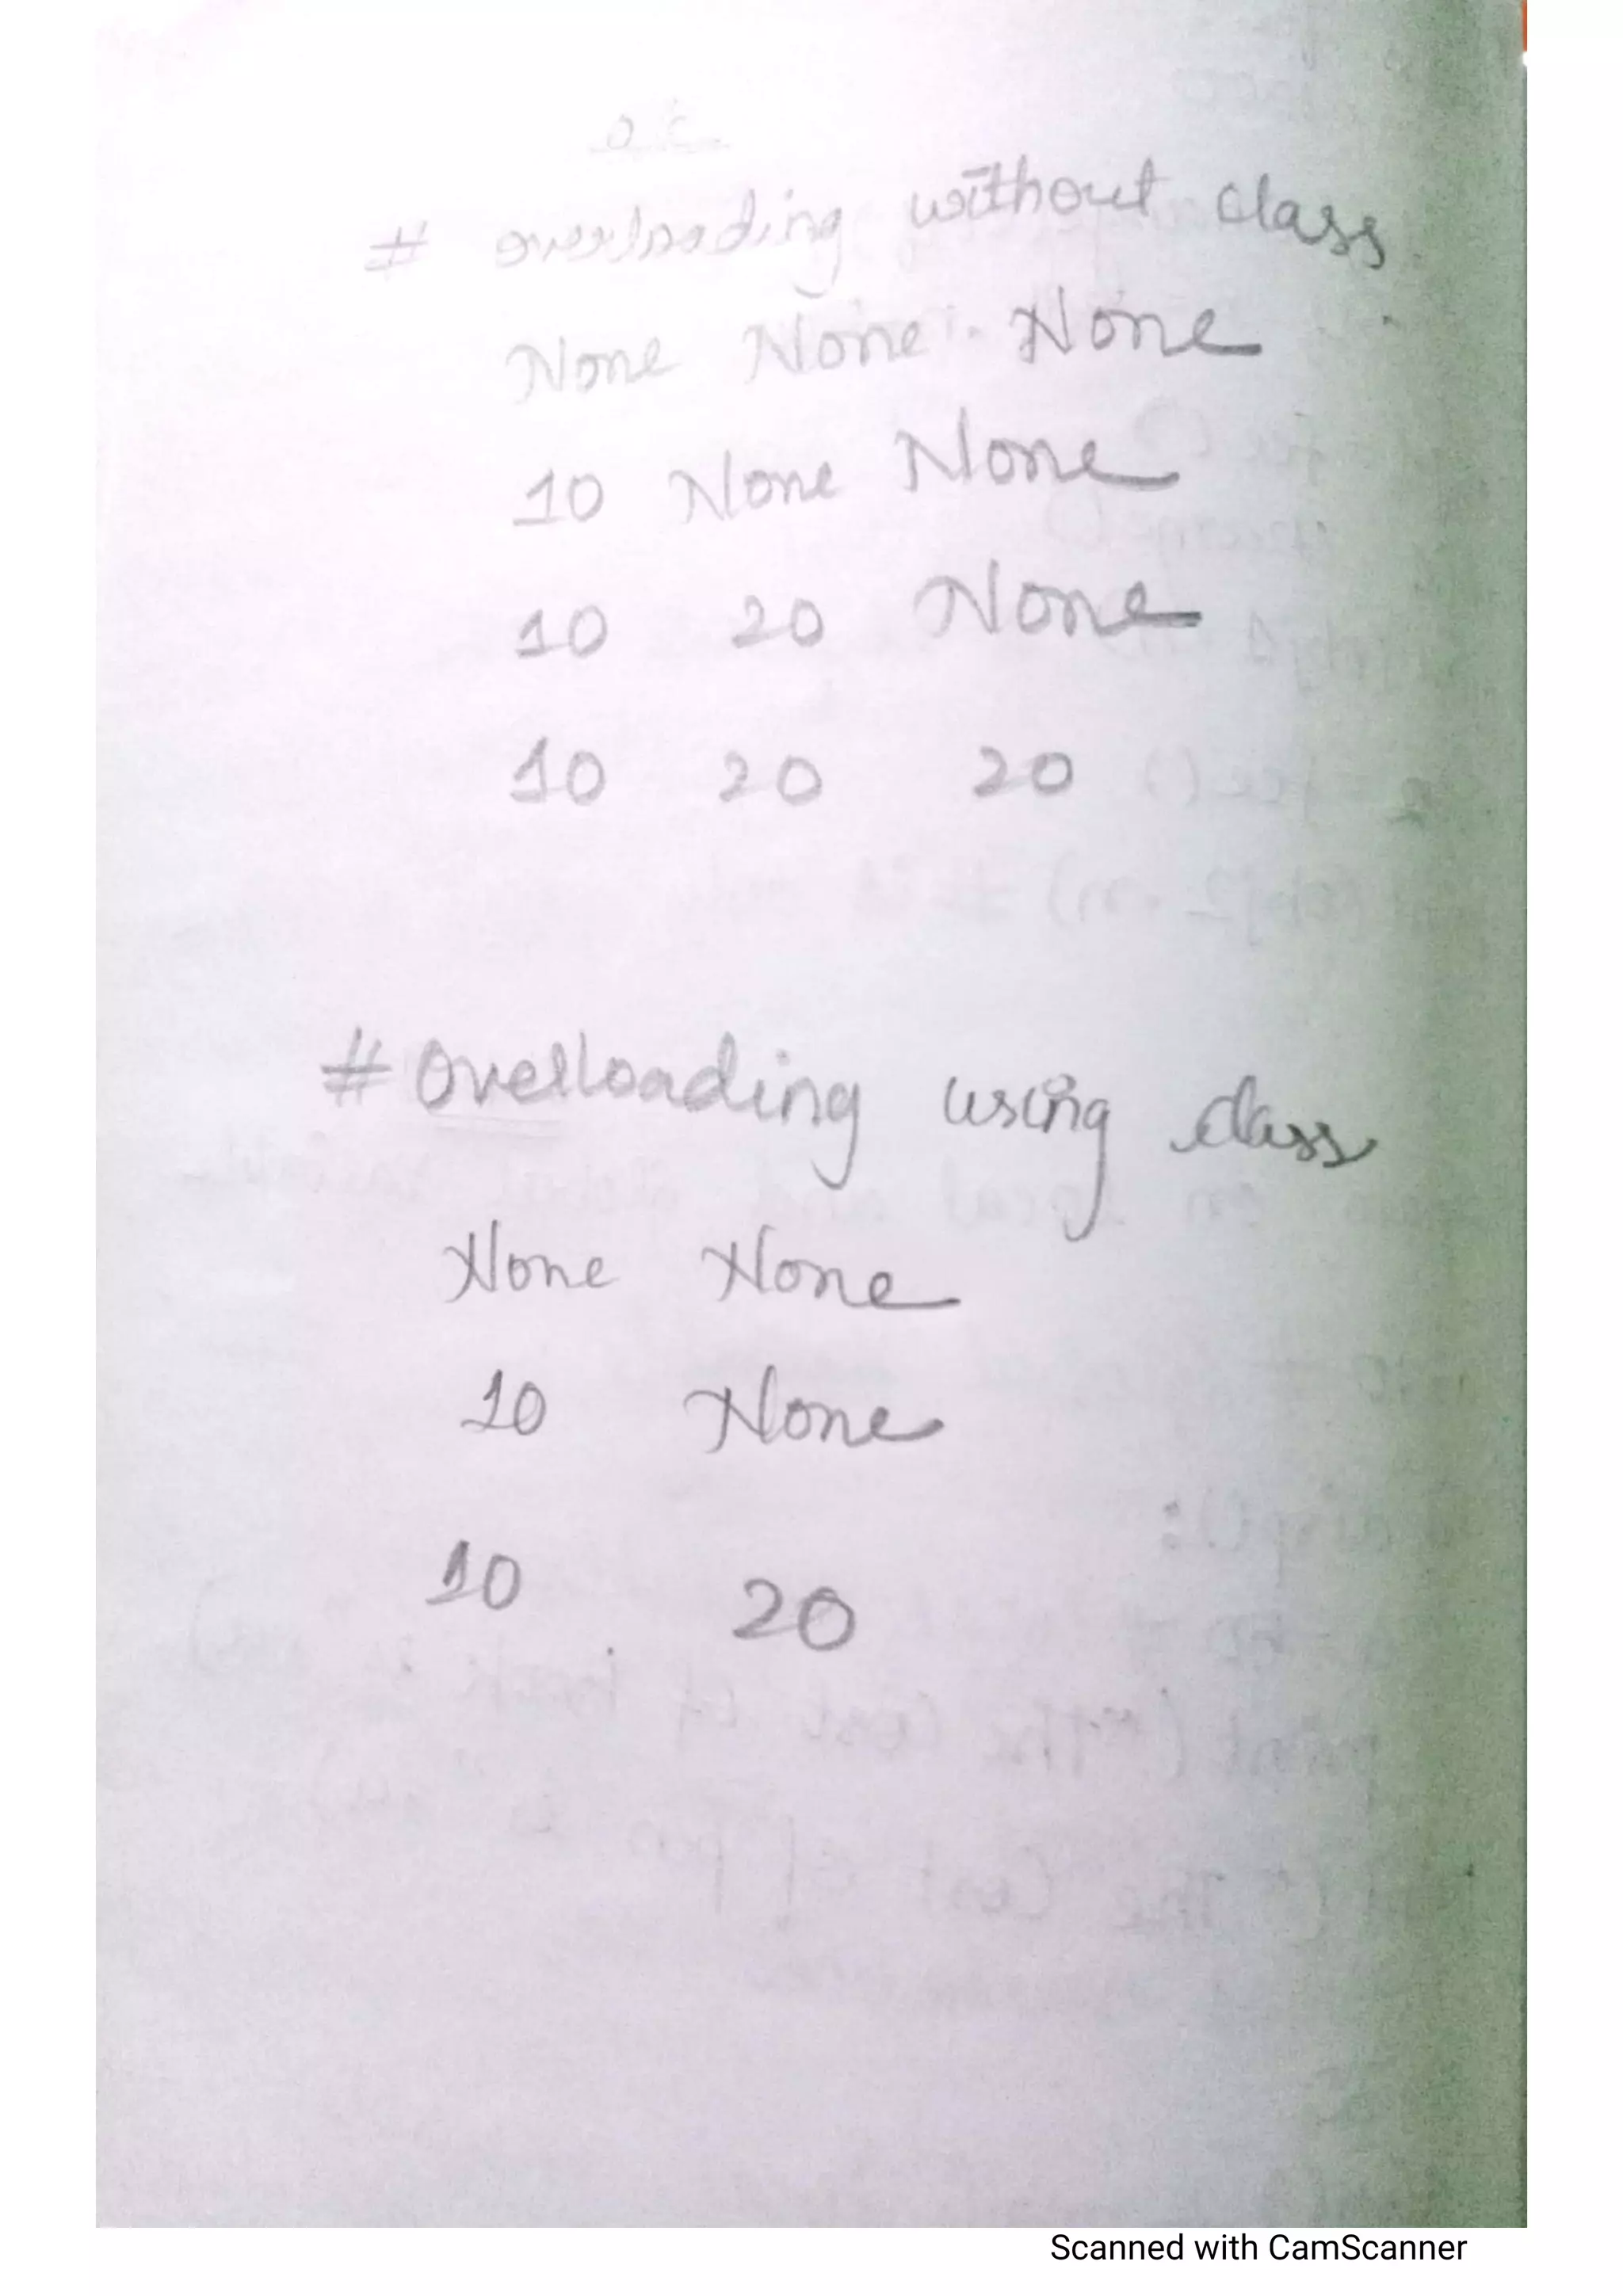 # overloading without class.
None None None
10 None None
10 20 None
10 20 20
# Overloading using class
None None
10 None
10 20
Scanned with CamScanner